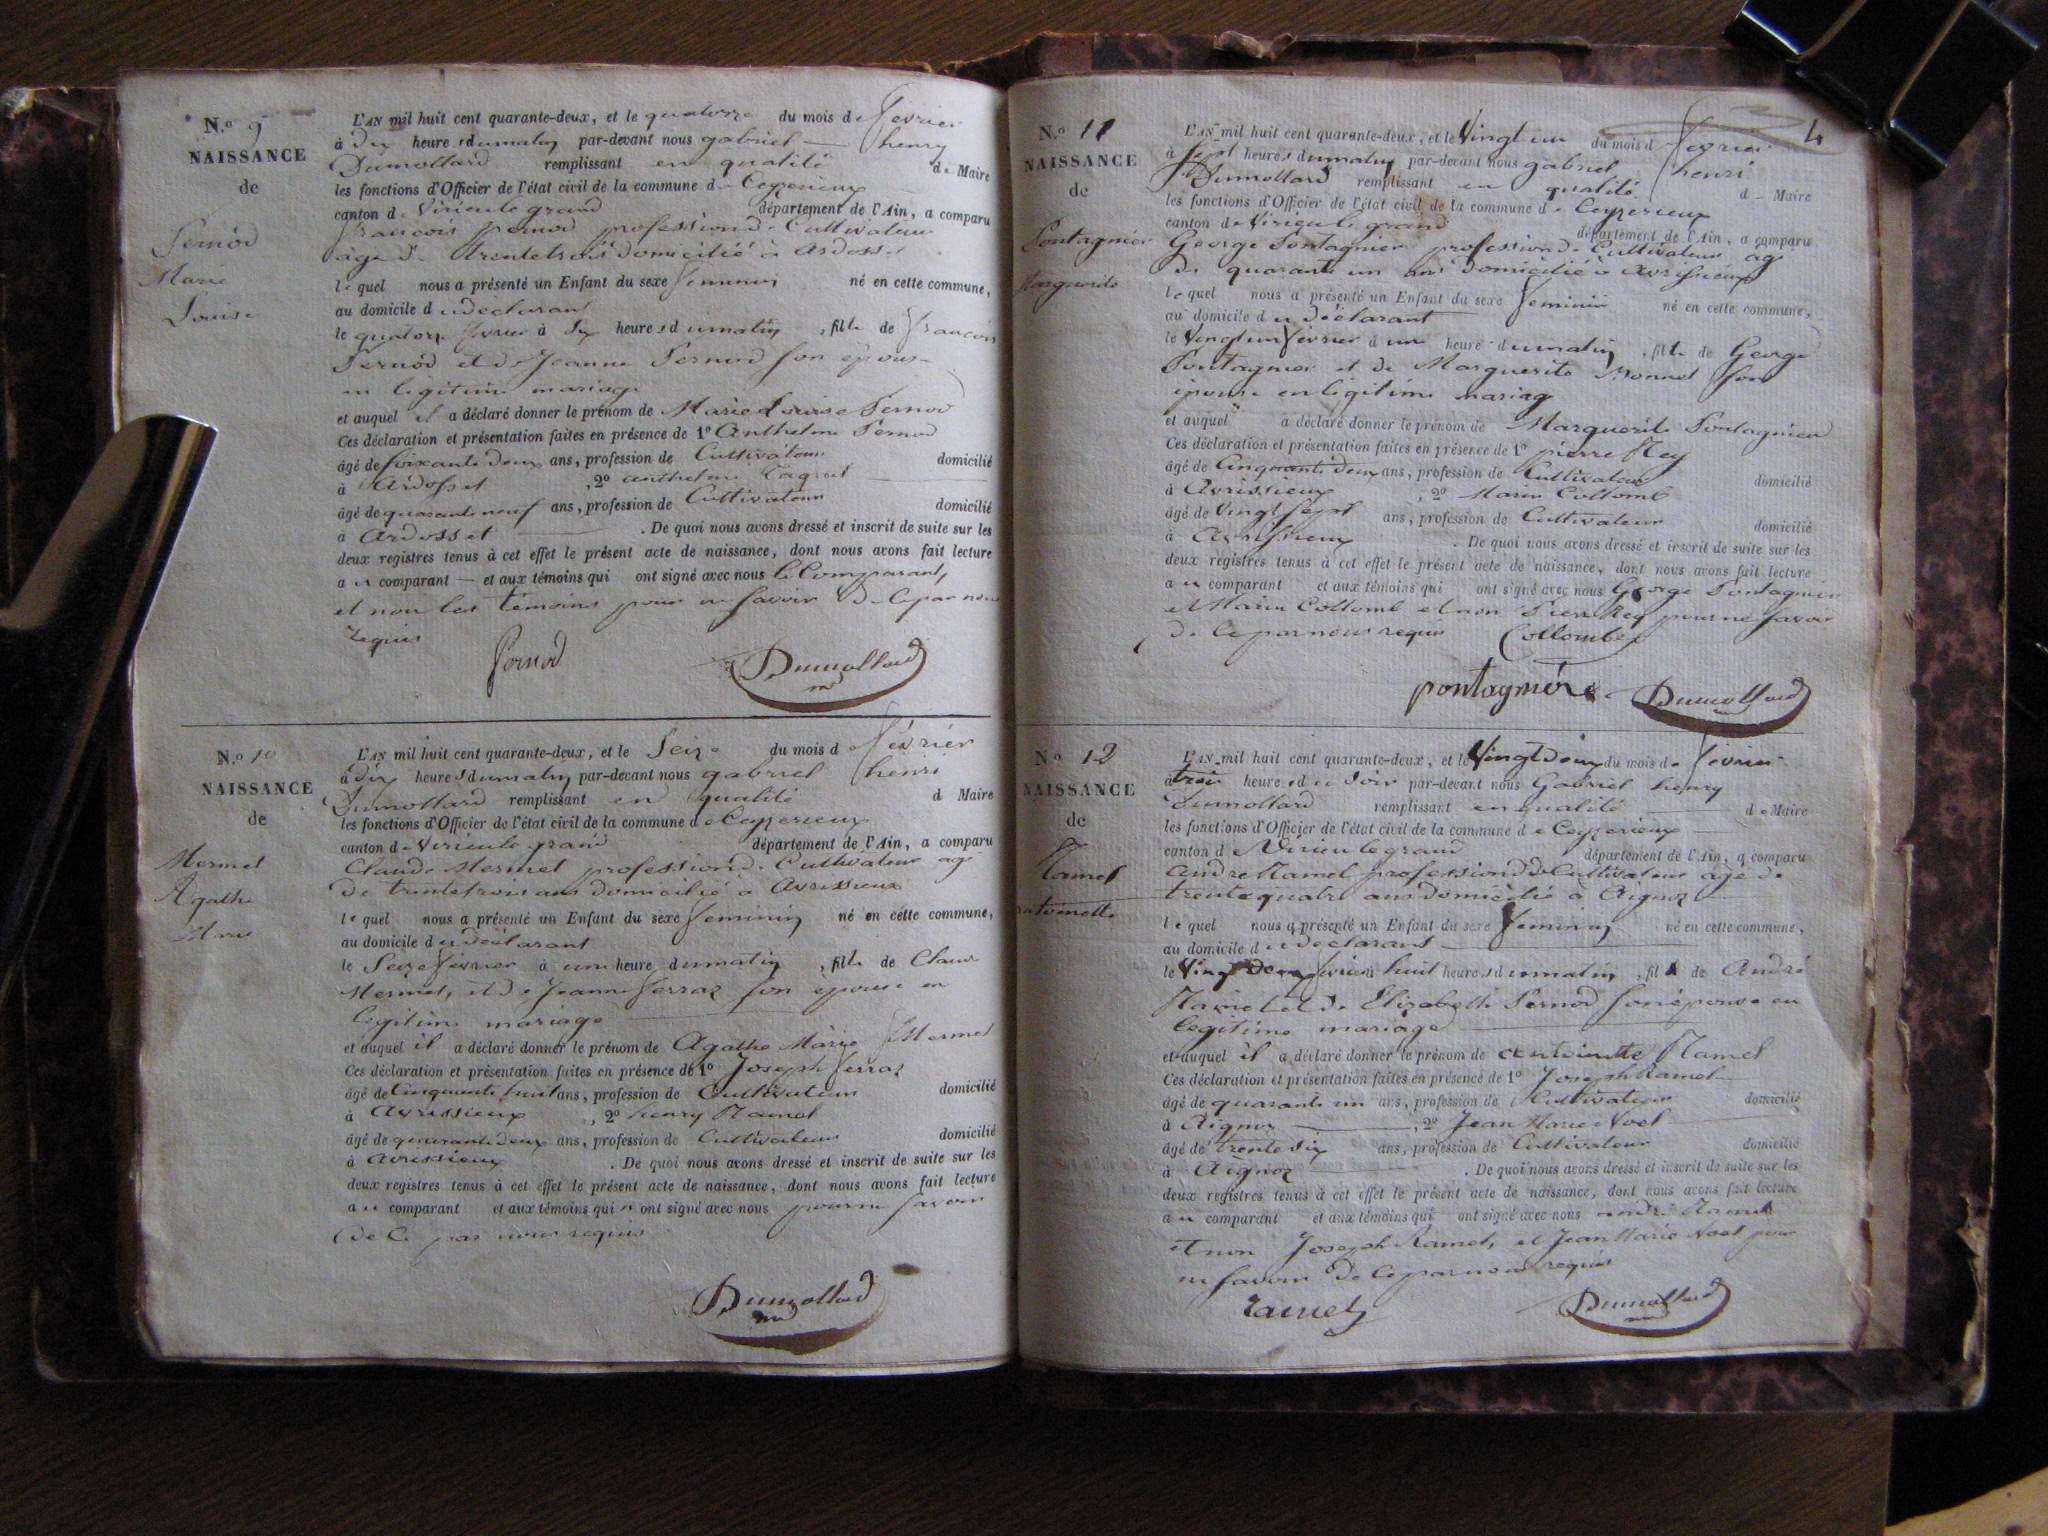 N.º 9
NAISSANCE
de
Pernod
Marie
Louise
L'AN mil huit cent quarante-deux, et le quatorze du mois de février
à dix heures du matin par-devant nous gabriel henry
Dumollard remplissant en qualité de Maire
les fonctions d'Officier de l'état civil de la commune de Ceyzerieux
canton de Virieu le grand département de l'Ain, a comparu
françois pernod profession de Cultivateur
âgé de trente trois domicilié à Ardosset
lequel nous a présenté un Enfant du sexe féminin né en cette commune,
au domicile du déclarant
le quatorze février à six heures du matin, fille de françois
Pernod et de Jeanne Pernod son épouse
en legitime mariage
et auquel il a déclaré donner le prénom de Marie Louise Pernod
Ces déclaration et présentation faites en présence de 1º Anthelme Pernod
âgé de soixante deux ans, profession de Cultivateur domicilié
à Ardosset, 2º anthelme
âgé de quarante neuf ans, profession de Cultivateur domicilié
à Ardosset. De quoi nous avons dressé et inscrit de suite sur les
deux registres tenus à cet effet le présent acte de naissance, dont nous avons fait lecture
au comparant et aux témoins qui ont signé avec nous le Comparant,
et non les témoins pour ne savoir de ce par nous
requis
Pernod Dumollard
N.º 10
NAISSANCE
de
Mermet
Agathe
Marie
L'AN mil huit cent quarante-deux, et le Seize du mois de février
à dix heures du matin par-devant nous gabriel henri
Dumollard remplissant en qualité d Maire
les fonctions d'Officier de l'état civil de la commune de Ceyzerieux
canton de Virieu le grand département de l'Ain, a comparu
Claude Mermet profession de Cultivateur agé
de trente trois ans domicilié a Avrissieux
lequel nous a présenté un Enfant du sexe feminin né en cette commune,
au domicile du déclarant
le Seize février à une heure du matin, fille de Claude
Mermet, et de Jeanne ferraz son epouse en
legitime mariage
et auquel il a déclaré donner le prénom de Agathe Marie Mermet
Ces déclaration et présentation faites en présence de 1º Joseph ferraz
âgé de Cinquante huit ans, profession de Cultivateur domicilié
à Avrissieux, 2º henry Ramel
âgé de quarante deux ans, profession de Cultivateur domicilié
à avrissieux. De quoi nous avons dressé et inscrit de suite sur les
deux registres tenus à cet effet le présent acte de naissance, dont nous avons fait lecture
au comparant et aux témoins qui n ont signé avec nous pour ne savoir
de ce par nous requis
Dumollard
4
N.º 11
NAISSANCE
de
Pontagnier
Marguerite
L'AN mil huit cent quarante-deux, et le Vingt un du mois de février
à Sept heures du matin par-devant nous gabriel henri
Dumollard remplissant en qualité d Maire
les fonctions d'Officier de l'état civil de la commune de Ceyzerieux
canton de Virieu le grand département de l'Ain, a comparu
George Pontagnier profession de Cultivateur agé
de quarante un ans domicilié à Avrissieux
lequel nous a présenté un Enfant du sexe feminin né en cette commune,
au domicile du déclarant
le Vingt un février à une heure du matin, fille de George
Pontagnier et de Marguerite Monnet son
épouse en légitime mariage
et auquel a déclaré donner le prénom de Marguerite Pontagnier
Ces déclaration et présentation faites en présence de 1º pierre Rey
âgé de Cinquante deux ans, profession de Cultivateur domicilié
à Avrissieux, 2º Marin Collomb
âgé de Vingt sept ans, profession de Cultivateur domicilié
à Avrissieux. De quoi nous avons dressé et inscrit de suite sur les
deux registres tenus à cet effet le présent acte de naissance, dont nous avons fait lecture
au comparant et aux témoins qui ont signé avec nous George Pontagnier
et Marin Collomb et non Pierre Rey pour ne savoir
de ce par nous requis Collombe
pontagniére Dumollard
N.º 12
NAISSANCE
de
Ramel
antoinette
L'AN mil huit cent quarante-deux, et le Vingt deux du mois de février
à trois heures du soir par-devant nous Gabriel henry
Dumollard remplissant en qualité de Maire
les fonctions d'Officier de l'état civil de la commune de Ceyzerieux
canton de Virieu le grand département de l'Ain, a comparu
André Ramel profession de Cultivateur agé de
trente quatre ans domicilié à Aignoz
lequel nous a présenté un Enfant du sexe feminin né en cette commune,
au domicile du déclarant
le Vingt deux février à huit heures du matin, fille de André
Ramel et de Elizabeth Pernod son épouse en
legitime mariage
et auquel il a déclaré donner le prénom de antoinette Ramel
Ces déclaration et présentation faites en présence de 1º Joseph Ramel
âgé de quarante un ans, profession de Cultivateur domicilié
à Aignoz, 2º Jean Marie Noel
âgé de trente six ans, profession de Cultivateur domicilié
à Aignoz. De quoi nous avons dressé et inscrit de suite sur les
deux registres tenus à cet effet le présent acte de naissance, dont nous avons fait lecture
au comparant et aux témoins qui ont signé avec nous andré Ramel
et non Joseph Ramel, et Jean Marie Noel pour
ne savoir de ce par nous requis
ramel Dumollard